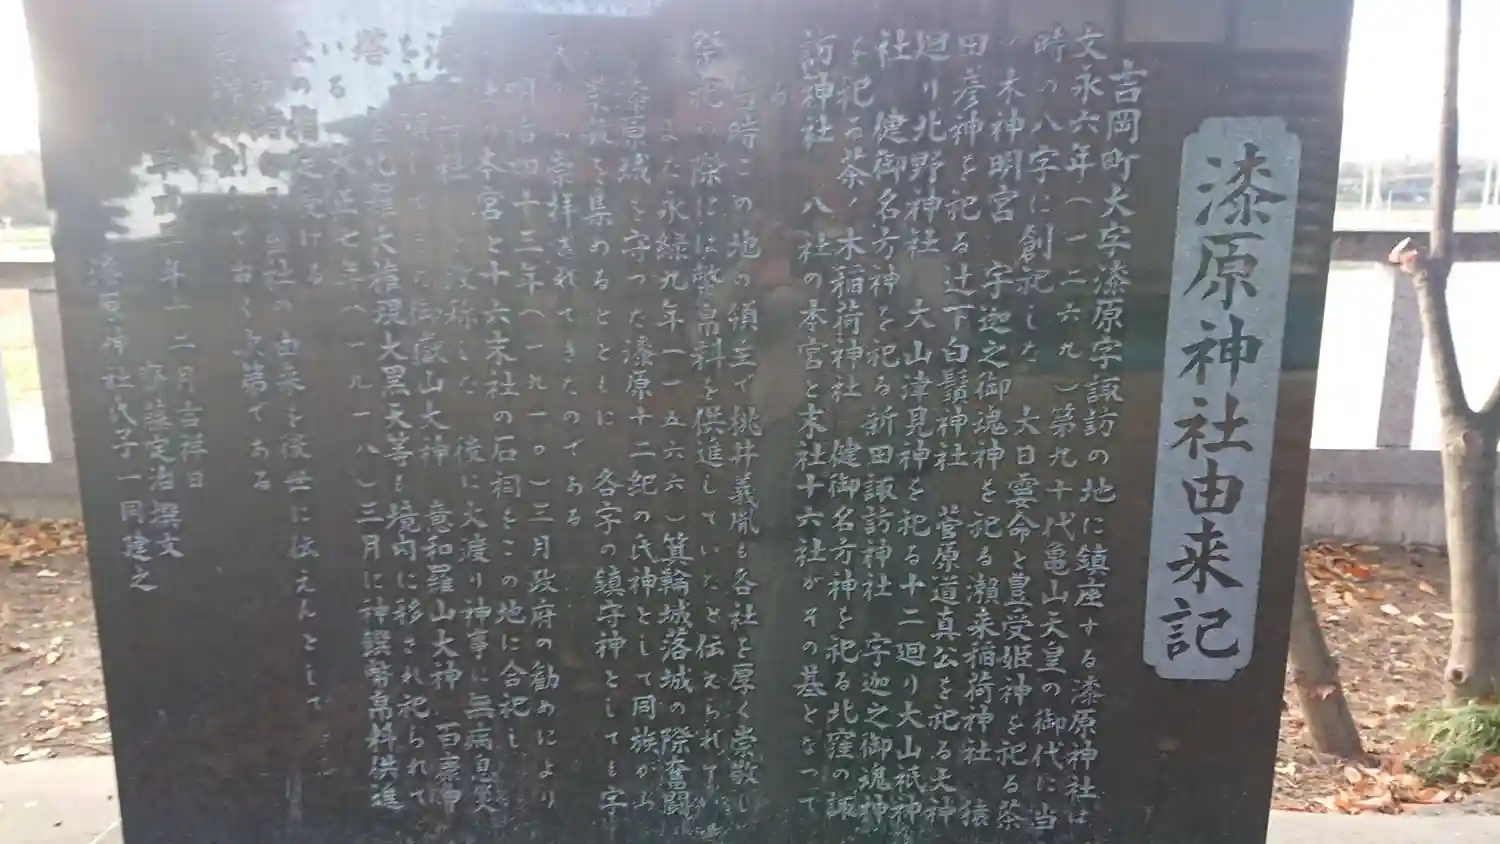 漆原神社由来記
吉岡町大字漆原字諏訪の地に鎮座する漆原神社は
文永六年（一二六九）第九十代亀山天皇の御代に当
時の八字に創祀した 大日孁命と豊受姫神を祀る茶
ノ木神明宮 宇迦之御魂神を祀る瀬来稲荷神社 猿
田彦神を祀る辻下白鬚神社 菅原道真公を祀る天神
廻り北野神社 大山津見神を祀る十二廻り大山祇神
社 健御名方神を祀る新田諏訪神社 宇迦之御魂神
を祀る茶ノ木稲荷神社 健御名方神を祀る北窪の諏
訪神社 八社の本宮と末社十六社がその基となって
当時この地の領主で桃井義胤も各社を厚く崇敬し
祭祀の際には幣帛料を供進していたと伝えられて
また永緑九年（一五六六）箕輪城落城の際奮闘
漆原城を守った漆原十二紀の氏神として同族が
崇敬を集めるとともに 各字の鎮守神としても字
崇拝されてきたのである
明治四十三年（一九一〇）三月政府の勧めにより
本宮と十六末社の石祠をこの地に合祀し
称した 後に火渡り神事に無病息災
御嶽山大神 意和羅山大神 百
比羅大権現大黒天等も境内に移され祀られて
いる 大正七年（一九一八）三月に神饌幣帛料供進
の指定を受ける
社の由来を後世に伝えんとして
ておく次第である
年十二月吉祥日
齊藤定治撰文
漆原神社氏子一同建之